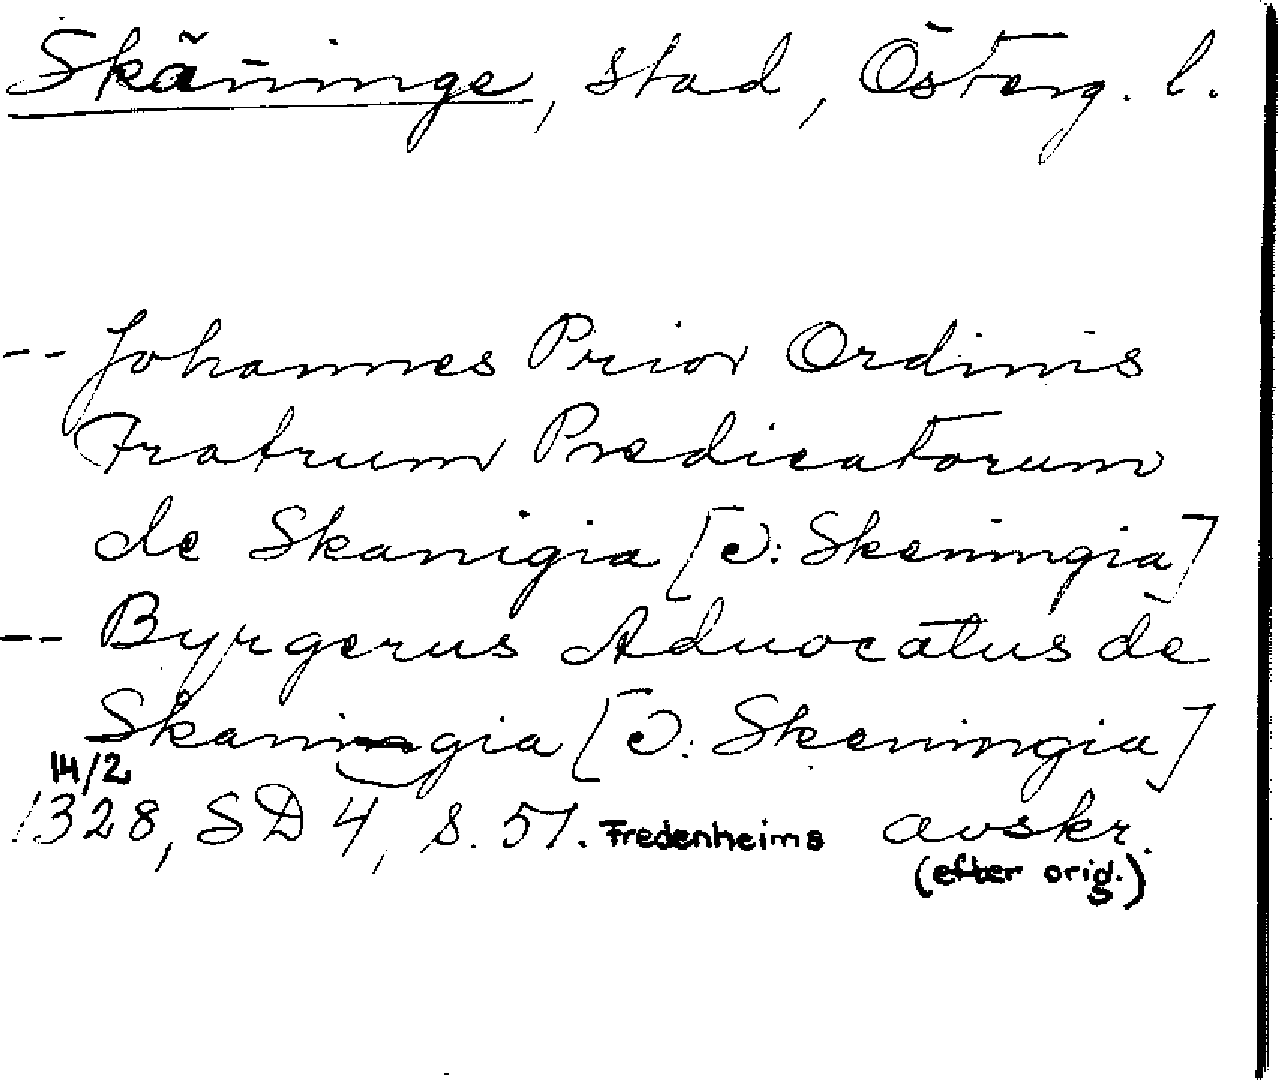 Skänninge, stad, Österg. l.
-- Johannes Prior Ordinis
Fratrum Predicatorum
de Skanigia [ↄ: Skeningia]
-- Byrgerus Aduocatus de
Skanigia [ↄ: Skeningia]
14/2
1328, SD 4, s. 51. Fredenheims avskr.
(efter orig.)